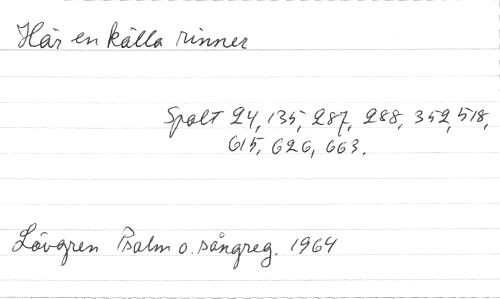 Här en källa rinner
Spalt 24, 135, 287, 288, 352, 518,
615, 626, 663.
Lövgren Psalm o. sångreg. 1964